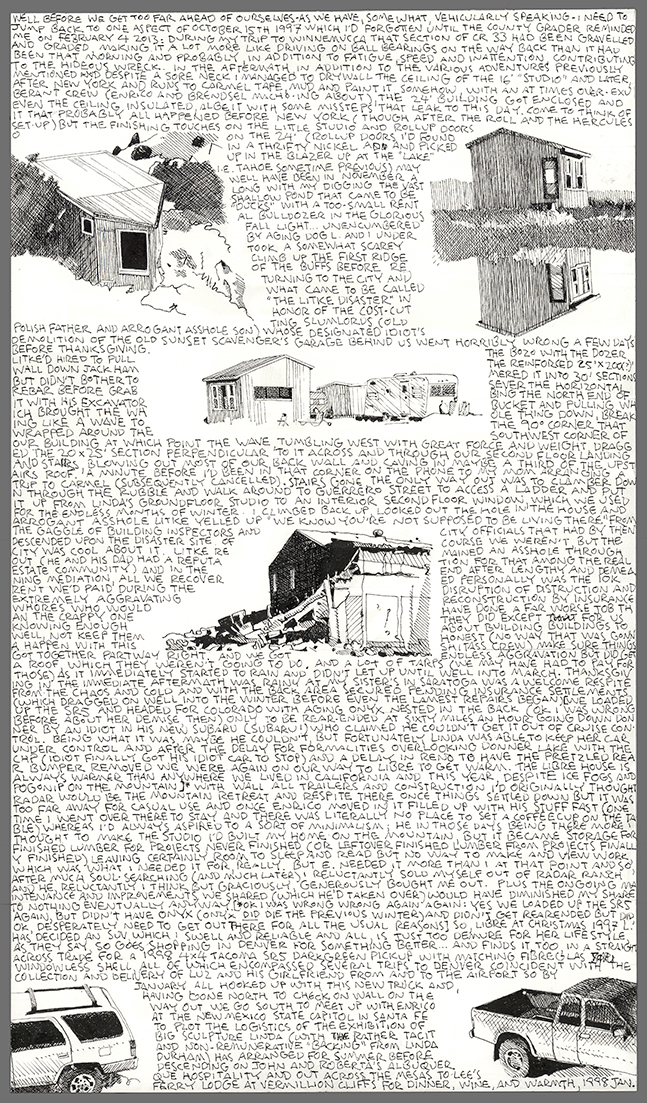 WELL BEFORE WE GET TOO FAR AHEAD OF OURSELVES. AS WE HAVE, SOMEWHAT, VEHICULARLY SPEAKING. I NEED TO
JUMP BACK TO ONE ASPECT OF OCTOBER 15TH 1997 WHICH I'D FORGOTTEN UNTIL THE COUNTY GRADER REMINDED
ME ON FEBRUARY 4 2013: DURING MY TRIP TO WINNEMUCCA THAT SECTION OF CR 33 HAD BEEN GRAVELLED
AND GRADED MAKING IT A LOT MORE LIKE DRIVING ON BALL BEARINGS ON THE WAY BACK THAN IT HAD
BEEN THAT MORNING AND PROBABLY (IN ADDITION TO FATIGUE, SPEED, AND INATENTION) CONTRIBUTING
TO THE HIDEOUS WRECK. IN THE AFTERMATH, IN ADDITION TO THE VARIOUS ADVENTURES PREVIOUSLY
MENTIONED AND DESPITE A SORE NECK I MANAGED TO DRYWALL THE CEILING OF THE 16" "STUDIO" AND LATER,
AFTER NEW YORK AND RUNS TO CARMEL TAPE, MUD, AND PAINT IT SOMEHOW, WITH AN AT TIMES OVER-EXU
BERANT CREW (ENRICO AND BRENDSEL MUCHO-ING ABOUT) THE 24" BUILDING GOT ENCLOSED AND
EVEN THE CEILING INSULATED, ALBEIT WITH SOME MISSTEPS THAT LEAK TO THIS DAY, COME TO THINK OF
IT THAT PROBABLY ALL HAPPENED BEFORE NEW YORK (THOUGH AFTER THE ROLL AND THE HERCULES
SET-UP) BUT THE FINISHING TOUCHES ON THE LITTLE STUDIO AND ROLLUP DOORS
ON THE 24" (ROLLUP DOORS I'D FOUND
IN A THRIFTY NICKEL AD AND PICKED
UP IN THE BLAZER UP AT THE "LAKE"
I.E. TAHOE SOMETIME PREVIOUS) MAY
WELL HAVE BEEN IN NOVEMBER A
LONG WITH MY DIGGING THE VAST
SHALLOW POND THAT CAME TO BE
"DUCKS" WITH A TOO-SMALL RENT
AL BULLDOZER IN THE GLORIOUS
FALL LIGHT... UNENCUMBERED
BY AGING DOG L. AND I UNDER
TOOK A SOMEWHAT SCAREY
CLIMB UP THE FIRST RIDGE
OF THE BUFFS BEFORE RE
TURNING TO THE CITY AND
WHAT CAME TO BE CALLED
"THE LITKE DISASTER" IN
HONOR OF THE COST-CUT
TING SLUMLORDS (OLD
POLISH FATHER AND ARROGANT ASSHOLE SON) WHOSE DESIGNATED IDIOT'S
DEMOLITION OF THE OLD SUNSET SCAVENGER'S GARAGE BEHIND US WENT HORRIBLY WRONG A FEW DAYS
BEFORE THANKSGIVING. THE BOZO WITH THE DOZER
LITKE'D HIRED TO PULL THE REINFORSED 25' X 200(?)'
WALL DOWN JACK HAM MERED IT INTO 30' SECTIONS
BUT DIDN'T BOTHER TO SEVER THE HORIZONTAL
REBAR BEFORE GRAB BING THE NORTH END OF
IT WITH HIS EXCAVATOR BUCKET AND PULLING WH
ICH BROUGHT THE WH OLE THING DOWN, BREAK
ING LIKE A WAVE TO THE 90° CORNER THAT
WRAPPED AROUND THE SOUTHWEST CORNER OF
OUR BUILDING AT WHICH POINT THE WAVE TUMBLING WEST WITH GREAT FORCE AND WEIGHT DRAGG
ED THE 20 X 25' SECTION PERPENDICULAR TO IT ACROSS AND THROUGH OUR SECOND FLOOR LANDING
AND STAIRS, BLOWING OUT MOST OF OUR BACK WALL AND CAVING IN MAYBE A THIRD OF THE UPST
AIRS ROOF. A MINUTE BEFORE I'D BEEN IN THAT CORNER ON THE PHONE TO MY MOM ARRANGING A
TRIP TO CARMEL (SUBSEQUENTLY CANCELLED). STAIRS GONE THE ONLY WAY OUT WAS TO CLAMBER DOW
N THROUGH THE RUBBLE AND WALK AROUND TO GUERRERO STREET TO ACCESS A LADDER AND PUT
IT UP FROM LINDA'S GROUNDFLOOR STUDIO TO AN INTERIOR SECOND FLOOR WINDOW, WHICH WE USED
FOR THE ENDLESS MONTHS OF WINTER. I CLIMBED BACK UP, LOOKED OUT THE HOLE IN THE HOUSE AND
ARROGANT ASSHOLE LITKE YELLED UP "WE KNOW YOU'RE NOT SUPPOSED TO BE LIVING THERE." FROM
THE GAGGLE OF BUILDING INSPECTORS AND CITY OFFICIALS THAT HAD BY THEN
DESCENDED UPON THE DISASTER SITE OF COURSE WE WEREN'T, BUT THE
CITY WAS COOL ABOUT IT. LITKE RE MAINED AN ASSHOLE THROUGH
OUT (HE AND HIS DAD HAD A REPUTA TION FOR THAT AMONG THE REAL
ESTATE COMMUNITY) AND IN THE END AFTER LENGTHY AND DEMEA
NING MEDIATION, ALL WE RECOVER ED PERSONALLY WAS THE 10K
RENT WE'D PAID DURING THE DISRUPTION OF DSTRUCTION AND
EXTREMELY AGGRAVATING RECONSTRUCTION BY INSURANCE
WHORES WHO WOULD HAVE DONE A FAR WORSE JOB TH
AN THE CRAPPY ONE THEY DID EXCEPT FOR US
KNOWING ENOUGH ABOUT BUILDING BUILDINGS TO
WELL, NOT KEEP THEM HONEST (NO WAY THAT WAS GONN
A HAPPEN WITH THIS SHITASS CREW) MAKE SURE THINGS
GOT TOGETHER PARTWAY RIGHT. AND WE GOT ENDLESS AGGRAVATION BUT DID GET
A ROOF WHICH THEY WEREN'T GOING TO DO, AND A LOT OF TARPS (WE MAY HAVE HAD TO PAY FOR
THOSE) AS IT IMMEDIATELY STARTED TO RAIN AND DIDN'T LET UP UNTIL WELL INTO MARCH. THANKSGIV
ING IN THE IMMEDIATE AFTERMATH WAS RAINY AT MY SISTER'S IN SARATOGA WAS A WELCOME RESPITE
FROM THE CHAOS AND COLD AND WITH THE BACK AREA SECURED PENDING INSURANCE SETTLEMENTS
(WHICH DRAGGED ON WELL INTO THE WINTER BEFORE EVEN THE LAMEST REPAIRS BEGAN) WE LOADED
UP THE SR5 AND HEADED FOR COLORADO WITH AGING ONYX NESTED IN THE BACK (OK I WAS WRONG
BEFORE ABOUT HER DEMISE THEN) ONLY TO BE REAR-ENDED AT SIXTY MILES AN HOUR GOING DOWN DON
NER BY AN IDIOT IN HIS NEW SUBARU (SUBARU) WHO CLAIMED HE COULDN'T GET IT OUT OF CRUISE CON
TROL. BEING WHAT IT WAS, MAYBE HE COULDN'T. BUT FORTUNATELY LINDA WAS ABLE TO KEEP HER CAR
UNDER CONTROL AND AFTER THE DELAY FOR FORMALITIES OVERLOOKING DONNER LAKE WITH THE
CHP (IDIOT FINALLY GOT HIS IDIOT CAR TO STOP) AND A DELAY IN RENO TO HAVE THE PRETZLED REA
R BUMPER REMOVED WE WERE AGAIN ON OUR WAY TO LIBRE TO GET WARM. THE LIBRE HOUSE IS
ALWAYS WARMER THAN ANYWHERE WE LIVED IN CALIFORNIA AND THIS YEAR, DESPITE ICE FOGS AND
POGONIP ON THE MOUNTAIN]* WITH WALL ALL TRAILERS AND CONSTRUCTION I'D ORIGINALLY THOUGHT
RADAR WOULD BE THE MOUNTAIN RETREAT AND RESPITE THERE ONCE THINGS SETTLED DOWN BUT IT WAS
TOO FAR AWAY FOR CASUAL USE AND ONCE ENRICO MOVED IN IT FILLED UP WITH HIS STUFF FAST (ONE
TIME I WENT OVER THERE TO STAY AND THERE WAS LITERALLY NO PLACE TO SET A COFFEECUP ON THE TA
BLE) WHEREAS I'D ALWAYS ASPIRED TO A SORT OF MINIMALISM; HE IN THOSE DAYS BEING THERE MORE, I
THOUGHT TO MAKE THE STUDIO WE BUILT MY HOME ON THE MOUNTAIN, BUT IT BECAME STORAGE FOR
FINISHED LUMBER FOR PROJECTS NEVER FINISHED (OR LEFTOVER FINISHED LUMBER FROM PROJECTS FINALL
Y FINISHED) LEAVING CERTAINLY ROOM TO SLEEP AND READ BUT NO WAY TO MAKE AND VIEW WORK
WHICH WAS WHAT I NEEDED IT FOR, REALLY. BUT E. NEEDED IT MORE THAN I AT THAT POINT AND SO,
AFTER MUCH SOUL-SEARCHING (AND MUCH LATER) I RELUCTANTLY SOLD MYSELF OUT OF RADAR RANCH,
AND HE, RELUCTANTLY I THINK BUT GRACIOUSLY, GENEROUSLY BOUGHT ME OUT. PLUS THE ONGOING MA
INTENANCE AND IMPROVEMENTS WE SHARED (WHICH HE'D TAKEN OVER) WOULD HAVE DIMINISHED MY SHARE
TO NOTHING EVENTUALLY ANYWAY. [*OK I WAS WRONG WRONG AGAIN AGAIN: YES WE LOADED UP THE SR5
AGAIN, BUT DIDN'T HAVE ONYX (ONYX DID DIE THE PREVIOUS WINTER) AND DIDN'T GET REARENDED BUT DID
OK, DESPERATELY NEED TO GET OUT THERE FOR ALL THE USUAL REASONS] SO, LIBRE AT CHRISTMAS 1997 L.
HAS DECIDED AN SUV WHILE SWELL AND RELIABLE AND ALL IS JUST TOO DEMURE FOR HER LIFESTYLE,
AS THEY SAY, SO GOES SHOPPING IN DENVER FOR SOMETHING BETTER... AND FINDS IT TOO IN A STRAIGHT
ACROSS TRADE FOR A 1998 4X4 TACOMA SR5 DARKGREEN PICKUP WITH MATCHING FIBREGLAS
WINDOWLESS SHELL, ALL OF WHICH ENCOMPASSED SEVERAL TRIPS TO DENVER COINCIDENT WITH THE
COLLECTION AND DELIVERY OF LUZ AND HIS GIRLFRIEND FROM AND TO THE AIRPORT SO BY
JANUARY ALL HOOKED UP WITH THIS NEW TRUCK AND,
HAVING GONE NORTH TO CHECK ON WALL ON THE
WAY OUT WE GO SOUTH TO MEET UP WITH ENRICO
AT THE NEW MEXICO STATE CAPITOL IN SANTA FE
TO PLOT THE LOGISTICS OF THE EXHIBITION OF
BIG SCULPTURE LINDA (WITH THE RATHER TACIT
AND NON-REMUNERATIVE "BACKING" FROM LINDA
DURHAM) HAS ARRANGED FOR SUMMER BEFORE
DESCENDING ON JOHN AND ROBERTA'S ALBUQUER
QUE HOSPITALITY AND OUT ACROSS THE MESAS TO LEE'S
FERRY LODGE AT VERMILLION CLIFFS FOR DINNER, WINE, AND WARMTH, 1998 JAN.